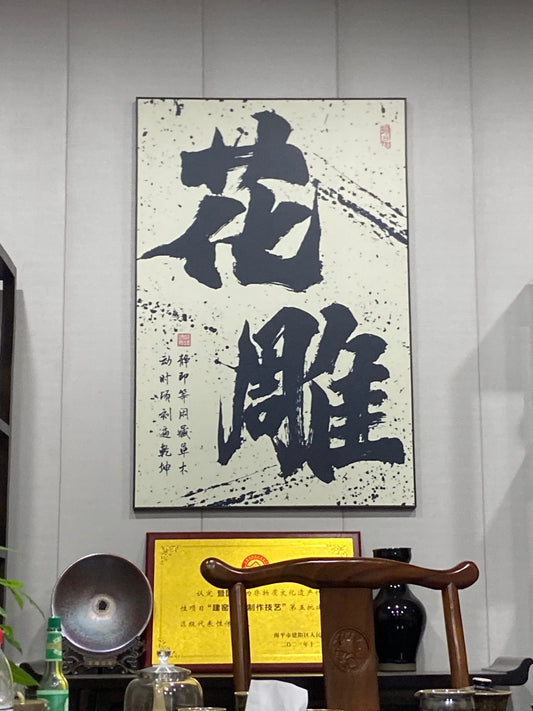 花雕
静即等闲藏草木
动时顷刻遍乾坤
认定 为非物质文化遗产
性项目“建窑 制作技艺”第五批
级代表性
南平市建阳区人民
年十二